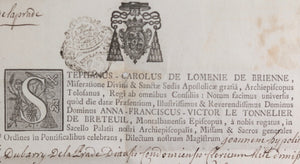 STEPHANUS-CAROLUS DE LOMENIE DE BRIENNE,
Miseratione Divinâ & Sanctæ Sedis Apostolicæ gratiâ, Archiepiscopus
Tolosanus, Regi ab omnibus Consiliis: Notum facimus universis,
quòd die datæ Præsentium, Illustrissimus & Reverendissimus Dominus
Dominus ANNA-FRANCISCUS-VICTOR LE TONNELIER
DE BRETEUIL, Montalbanensis Episcopus, à nobis rogatus, in
Sacello Palatii nostri Archiepiscopalis, Missam & Sacros generales
Ordines in Pontificalibus celebrans, Dilectum nostrum Magistrum